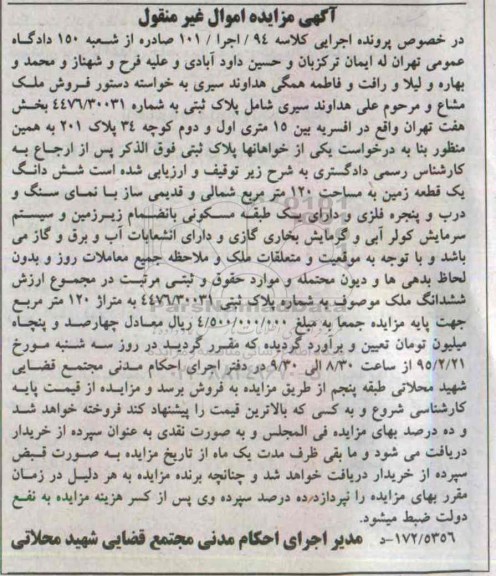 آگهی مزایده اموال غیر منقول
در خصوص پرونده اجرایی کلاسه ۹۴ / اجرا / ۱۰۱ صادره از شعبه ۱۵۰ دادگاه
عمومی تهران له ایمان ترکزبان و حسین داود آبادی و علیه فرح و شهناز و محمد و
بهاره و لیلا و رافت و فاطمه همگی هداوند سیری به خواسته دستور فروش ملک
مشاع و مرحوم علی هداوند سیری شامل پلاک ثبتی به شماره ۴۴۷۶/۳۰۰۳۱ بخش
هفت تهران واقع در افسریه بین ۱۵ متری اول و دوم کوچه ۳۴ پلاک ۲۰۱ به همین
منظور بنا به درخواست یکی از خواهانها پلاک ثبتی فوق الذکر پس از ارجاع به
کارشناس رسمی دادگستری به شرح زیر توقیف و ارزیابی شده است شش دانگ
یک قطعه زمین به مساحت ۱۲۰ متر مربع شمالی و قدیمی ساز با نمای سنگ و
درب و پنجره فلزی و دارای یک طبقه مسکونی بانضمام زیرزمین و سیستم
سرمایش کولر آبی و گرمایش بخاری گازی و دارای انشعابات آب و برق و گاز می
باشد و با توجه به موقعیت و متعلقات ملک و ملاحظه جمیع معاملات روز و بدون
لحاظ بدهی ها و دیون محتمله و موارد حقوق و ثبتی مرتبت در مجموع ارزش
ششدانگ ملک موصوف به شماره پلاک ثبتی ۴۴۷۶/۳۰۰۳۱ به متراژ ۱۲۰ متر مربع
جهت پایه مزایده جمعا به مبلغ ۴/۵۰۰/۰۰۰/۰۰۰ ریال معادل چهارصد و پنجاه
میلیون تومان تعیین و برآورد گردیده که مقرر گردید در روز سه شنبه مورخ
۹۵/۲/۲۱ از ساعت ۸/۳۰ الی ۹/۳۰ در دفتر اجرای احکام مدنی مجتمع قضایی
شهید محلاتی طبقه پنجم از طریق مزایده به فروش برسد و مزایده از قیمت پایه
کارشناسی شروع و به کسی که بالاترین قیمت را پیشنهاد کند فروخته خواهد شد
و ده درصد بهای مزایده فی المجلس و به صورت نقدی به عنوان سپرده از خریدار
دریافت می شود و ما بقی ظرف مدت یک ماه از تاریخ مزایده به صورت قبض
سپرده از خریدار دریافت خواهد شد و چنانچه برنده مزایده به هر دلیل در زمان
مقرر بهای مزایده را نپردازد ده درصد سپرده وی پس از کسر هزینه مزایده به نفع
دولت ضبط میشود.
۱۷۲/۵۳۵۶-د مدیر اجرای احکام مدنی مجتمع قضایی شهید محلاتی